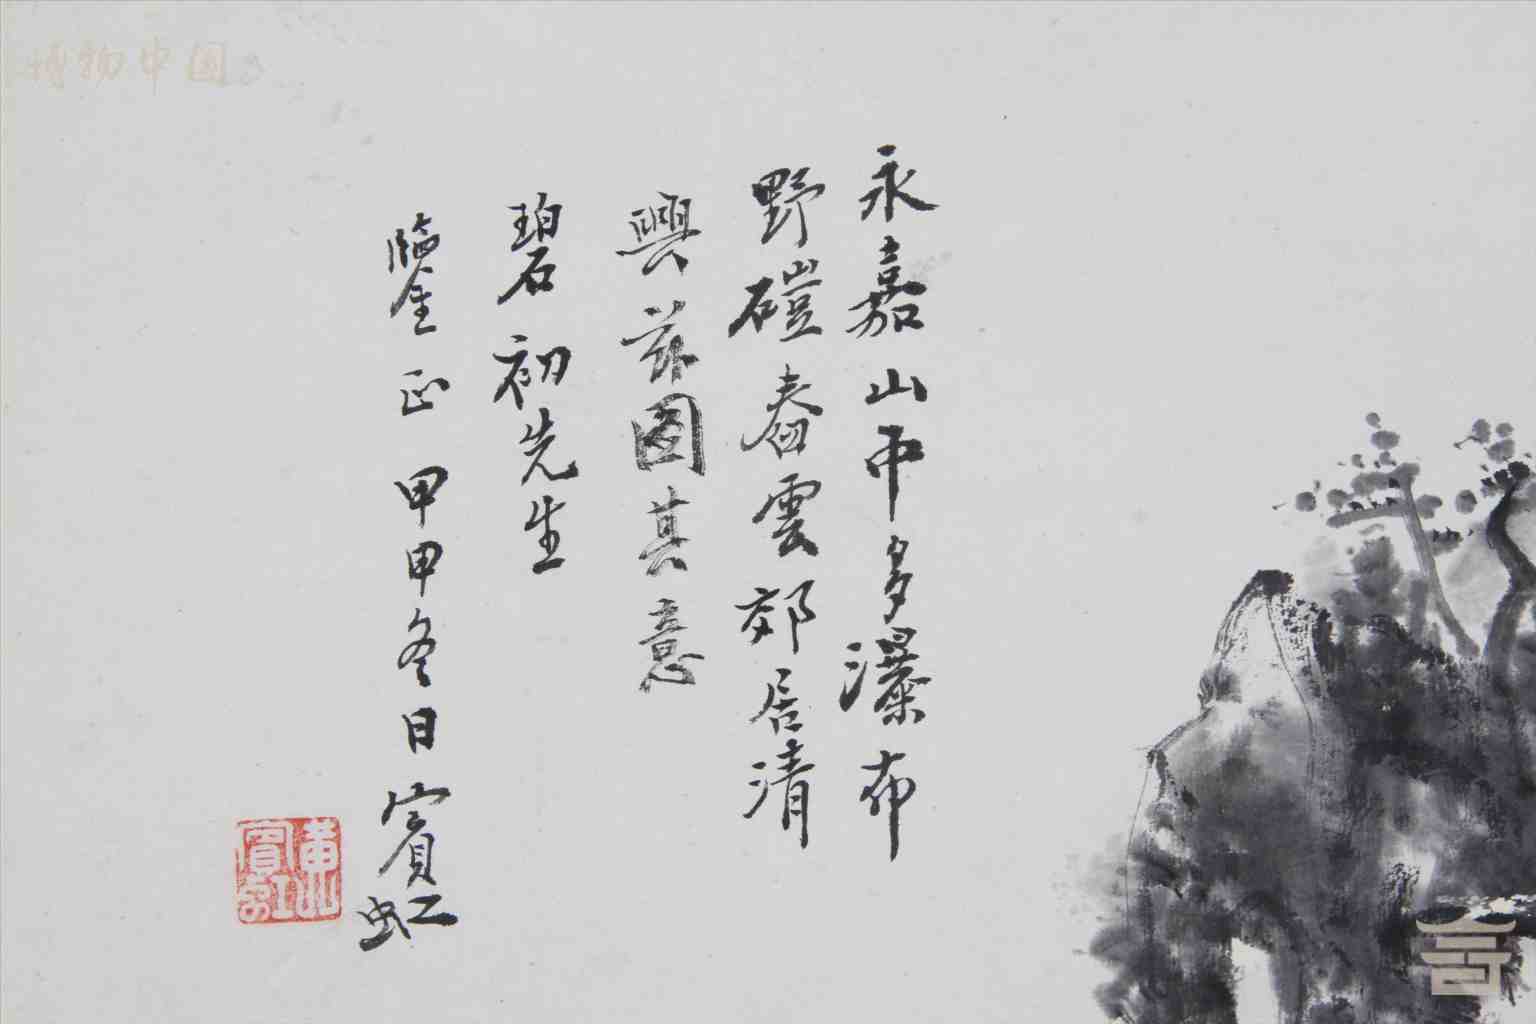 永嘉山中多瀑布
野磑舂雲郊居清
興茲圖其意
碧初先生
鑒正 甲申冬日 賓虹
黃山賓虹
博物中国